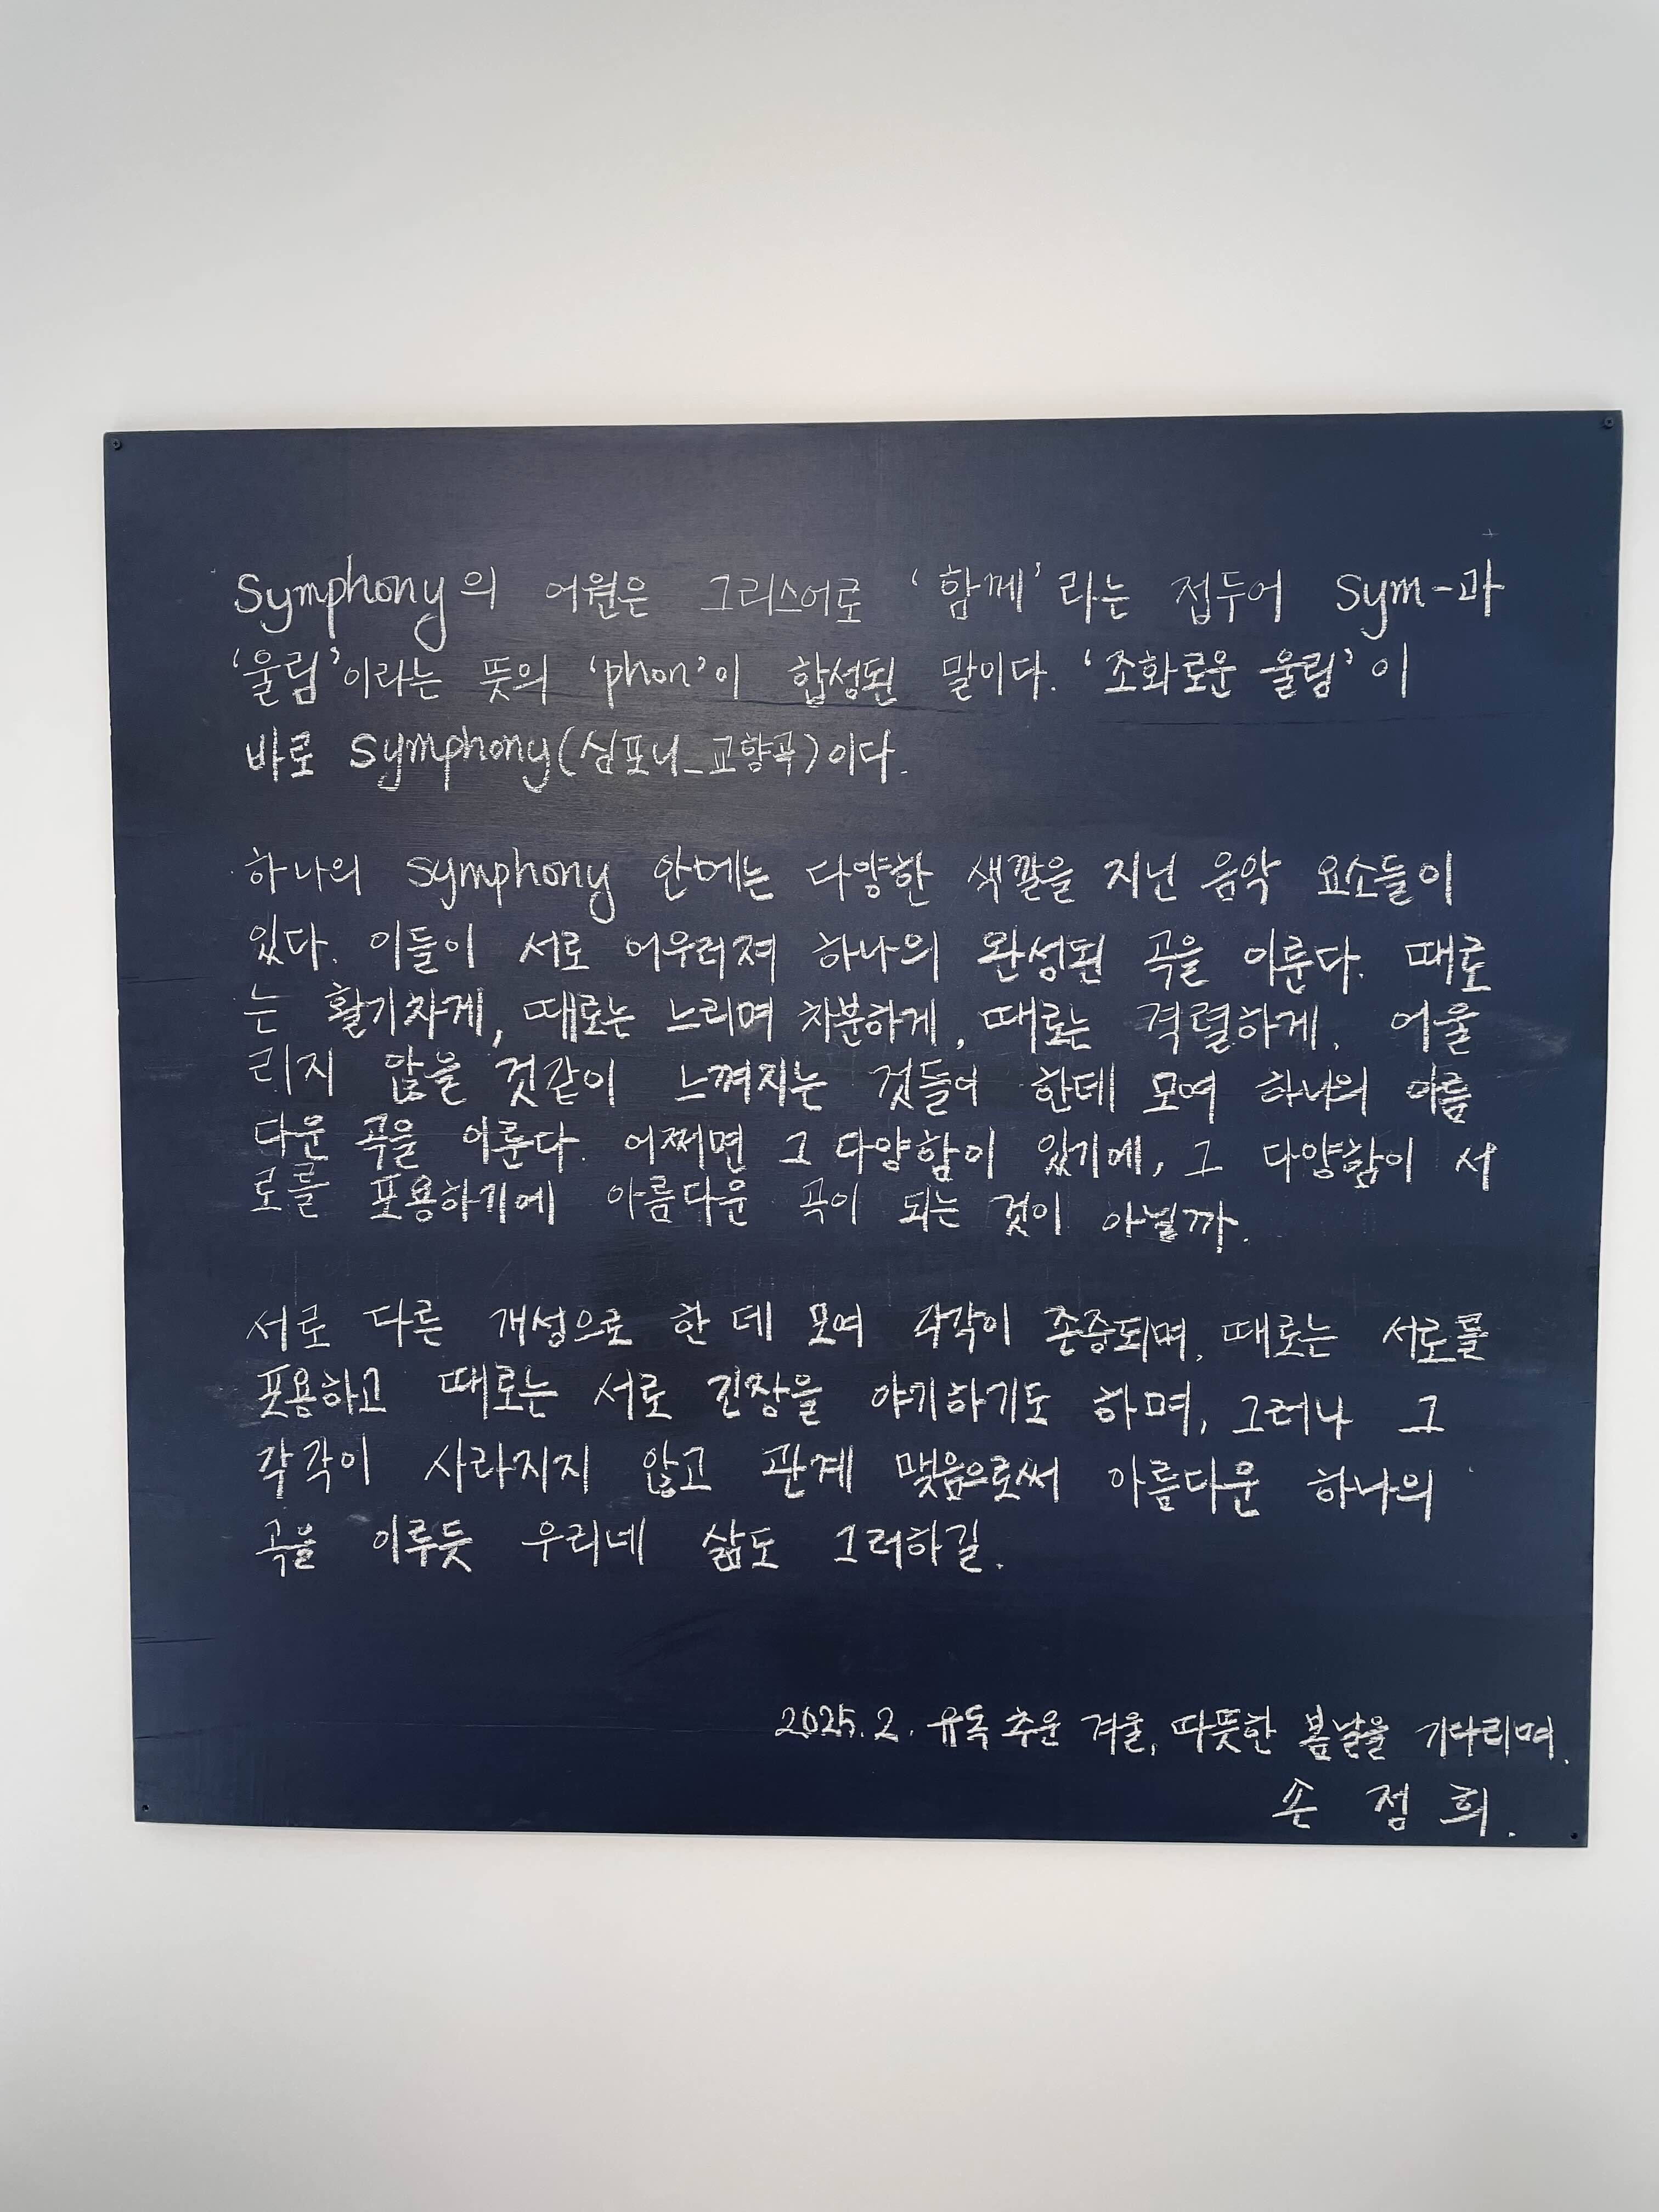 Symphony의 어원은 그리스어로 '함께'라는 접두어 Sym-과
'울림'이라는 뜻의 'phon'이 합성된 말이다. '조화로운 울림'이
바로 Symphony(심포니_교향곡)이다.
하나의 symphony 안에는 다양한 색깔을 지닌 음악 요소들이
있다. 이들이 서로 어우러져 하나의 완성된 곡을 이룬다. 때로
는 활기차게, 때로는 느리며 차분하게, 때로는 격렬하게. 어울
리지 않을 것같이 느껴지는 것들이 한데 모여 하나의 아름
다운 곡을 이룬다. 어쩌면 그 다양함이 있기에, 그 다양함이 서
로를 포용하기에 아름다운 곡이 되는 것이 아닐까.
서로 다른 개성으로 한 데 모여 각각이 존중되며, 때로는 서로를
포용하고 때로는 서로 긴장을 야기하기도 하며, 그러나 그
각각이 사라지지 않고 관계 맺음으로써 아름다운 하나의
곡을 이루듯 우리네 삶도 그러하길.
2025. 2. 유독 추운 겨울, 따뜻한 봄날을 기다리며.
손 정 희.